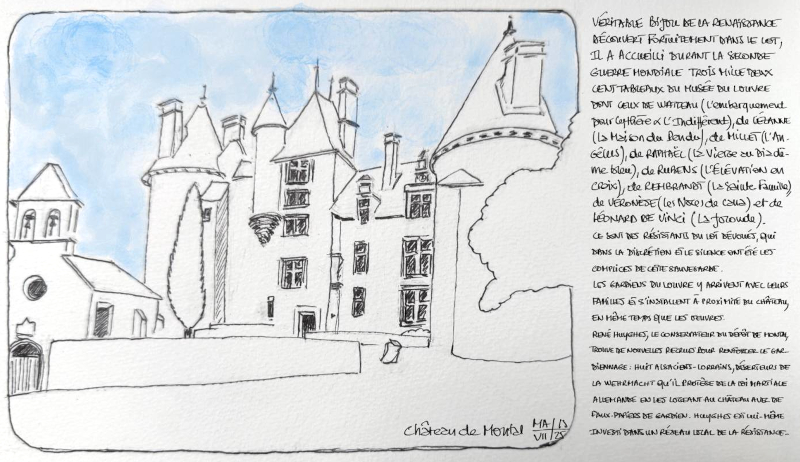 Château de Montal
MA/D
VII/25
VÉRITABLE BIJOU DE LA RENAISSANCE
DÉCOUVERT FORTUITEMENT DANS LE LOT,
IL A ACCUEILLI DURANT LA SECONDE
GUERRE MONDIALE TROIS MILLE DEUX
CENT TABLEAUX DU MUSÉE DU LOUVRE
DONT CEUX DE WATTEAU (L'embarquement
pour Cythère & L'Indifférent), de CÉZANNE
(La Maison du Pendu), de MILLET (l'An-
gélus), de RAPHAËL (La Vierge au Diadè-
me bleu), de RUBENS (L'ÉLÉVATION en
CROIX), de REMBRANDT (La Sainte Famille)
de VERONÈSE (les Noces de Cana) et de
LÉONARD DE VINCI (La Joconde).
CE SONT DES RÉSISTANTS DU LOT DÉVOUÉS, QUI
DANS LA DISCRÉTION ET LE SILENCE ONT ÉTÉ LES
COMPLICES DE CETTE SAUVEGARDE.
LES GARDIENS DU LOUVRE Y ARRIVENT AVEC LEURS
FAMILLES ET S'INSTALLENT À PROXIMITÉ DU CHÂTEAU,
EN MÊME TEMPS QUE LES OEUVRES.
RENÉ HUYGHES, LE CONSERVATEUR DU DÉPÔT DE MONTAL,
TROUVE DE NOUVELLES RECRUES POUR RENFORCER LE GAR-
DIENNAGE : HUIT ALSACIENS-LORRAINS, DÉSERTEURS DE
LA WEHRMACHT QU'IL PROTÈGE DE LA LOI MARTIALE
ALLEMANDE EN LES LOGEANT AU CHÂTEAU AVEC DE
FAUX-PAPIERS DE GARDIEN. HUYGHES EST LUI-MÊME
INVESTI DANS UN RÉSEAU LOCAL DE LA RÉSISTANCE.